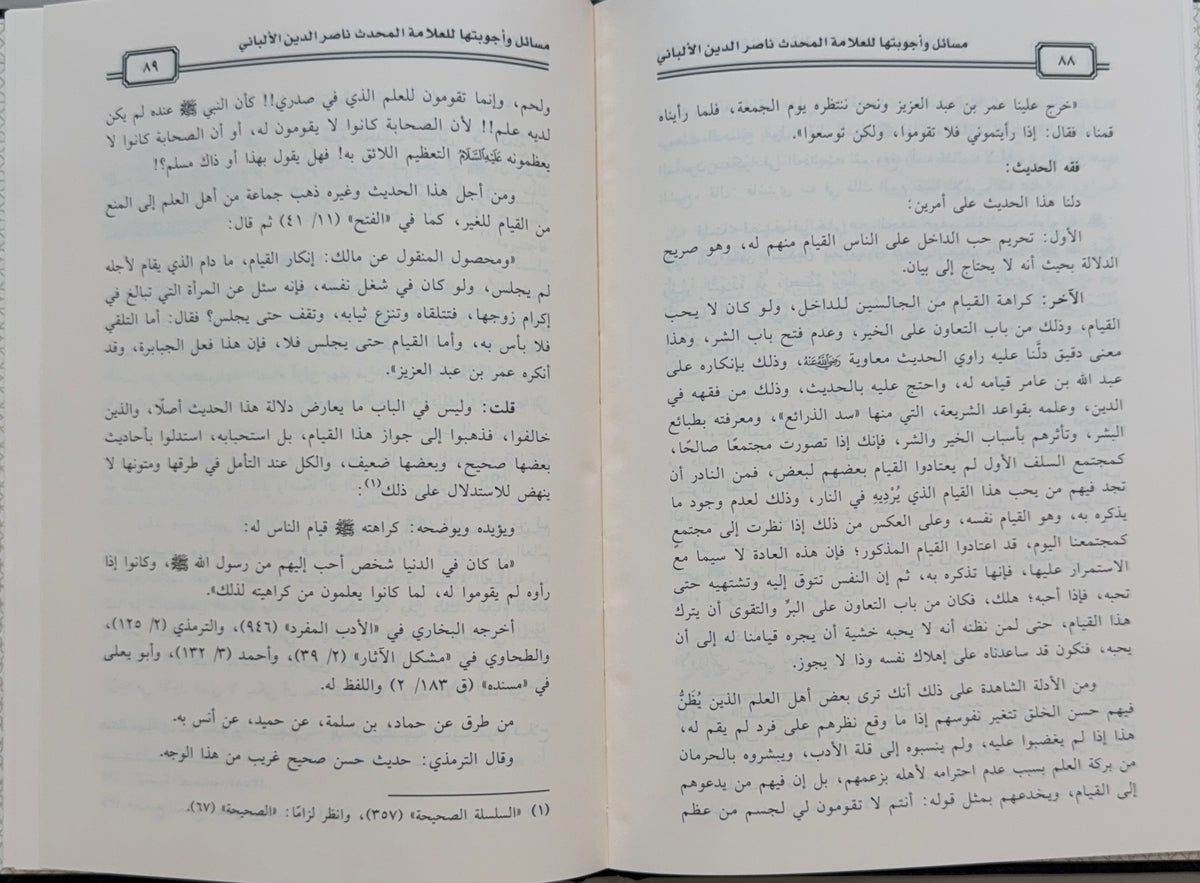 مسائل وأجوبتها للعلامة المحدث ناصر الدين الألباني
٨٨
«خرج علينا عمر بن عبد العزيز ونحن ننتظره يوم الجمعة، فلما رأيناه
قمنا، فقال: إذا رأيتموني فلا تقوموا، ولكن توسعوا».
فقه الحديث:
دلنا هذا الحديث على أمرين:
الأول: تحريم حب الداخل على الناس القيام منهم له، وهو صريح
الدلالة بحيث أنه لا يحتاج إلى بيان.
الآخر: كراهة القيام من الجالسين للداخل، ولو كان لا يحب
القيام، وذلك من باب التعاون على الخير، وعدم فتح باب الشر، وهذا
معنى دقيق دلَّنا عليه راوي الحديث معاوية رضي الله عنه، وذلك بإنكاره على
عبد الله بن عامر قيامه له، واحتج عليه بالحديث، وذلك من فقهه في
الدين، وعلمه بقواعد الشريعة، التي منها «سد الذرائع»، ومعرفته بطبائع
البشر، وتأثرهم بأسباب الخير والشر، فإنك إذا تصورت مجتمعًا صالحًا،
كمجتمع السلف الأول لم يعتادوا القيام بعضهم لبعض، فمن النادر أن
تجد فيهم من يحب هذا القيام الذي يُرْدِيهِ في النار، وذلك لعدم وجود ما
يذكره به، وهو القيام نفسه، وعلى العكس من ذلك إذا نظرت إلى مجتمعٍ
كمجتمعنا اليوم، قد اعتادوا القيام المذكور؛ فإن هذه العادة لا سيما مع
الاستمرار عليها، فإنها تذكره به، ثم إن النفس تتوق إليه وتشتهيه حتى
تحبه، فإذا أحبه؛ هلك، فكان من باب التعاون على البرِّ والتقوى أن يترك
هذا القيام، حتى لمن نظنه أنه لا يحبه خشية أن يجره قيامنا له إلى أن
يحبه، فنكون قد ساعدناه على إهلاك نفسه وذا لا يجوز.
ومن الأدلة الشاهدة على ذلك أنك ترى بعض أهل العلم الذين يُظَنُّ
فيهم حسن الخلق تتغير نفوسهم إذا ما وقع نظرهم على فرد لم يقم له،
هذا إذا لم يغضبوا عليه، ولم ينسبوه إلى قلة الأدب، ويبشروه بالحرمان
من بركة العلم بسبب عدم احترامه لأهله بزعمهم، بل إن فيهم من يدعوهم
إلى القيام، ويخدعهم بمثل قوله: أنتم لا تقومون لي لجسم من عظم
مسائل وأجوبتها للعلامة المحدث ناصر الدين الألباني
٨٩
ولحم، وإنما تقومون للعلم الذي في صدري!! كأن النبي ﷺ عنده لم يكن
لديه علم!! لأن الصحابة كانوا لا يقومون له، أو أن الصحابة كانوا لا
يعظمونه عليه السلام التعظيم اللائق به! فهل يقول بهذا أو ذاك مسلم؟!
ومن أجل هذا الحديث وغيره ذهب جماعة من أهل العلم إلى المنع
من القيام للغير، كما في «الفتح» (١١/ ٤١) ثم قال:
«ومحصول المنقول عن مالك: إنكار القيام، ما دام الذي يقام لأجله
لم يجلس، ولو كان في شغل نفسه، فإنه سئل عن المرأة التي تبالغ في
إكرام زوجها، فتتلقاه وتنزع ثيابه، وتقف حتى يجلس؟ فقال: أما التلقي
فلا بأس به، وأما القيام حتى يجلس فلا، فإن هذا فعل الجبابرة، وقد
أنكره عمر بن عبد العزيز».
قلت: وليس في الباب ما يعارض دلالة هذا الحديث أصلًا، والذين
خالفوا، فذهبوا إلى جواز هذا القيام، بل استحبابه، استدلوا بأحاديث
بعضها صحيح، وبعضها ضعيف، والكل عند التأمل في طرقها ومتونها لا
ينهض للاستدلال على ذلك(١):
ويؤيده ويوضحه: كراهته ﷺ قيام الناس له:
«ما كان في الدنيا شخص أحب إليهم من رسول الله ﷺ، وكانوا إذا
رأوه لم يقوموا له، لما كانوا يعلمون من كراهيته لذلك».
أخرجه البخاري في «الأدب المفرد» (٩٤٦)، والترمذي (٢/ ١٢٥)،
والطحاوي في «مشكل الآثار» (٢/ ٣٩)، وأحمد (٣/ ١٣٢)، وأبو يعلى
في «مسنده» (ق ١٨٣/ ٢) واللفظ له.
من طرق عن حماد، بن سلمة، عن حميد، عن أنس به.
وقال الترمذي: حديث حسن صحيح غريب من هذا الوجه.
(١) «السلسلة الصحيحة» (٣٥٧)، وانظر لزامًا: «الصحيحة» (٦٧).